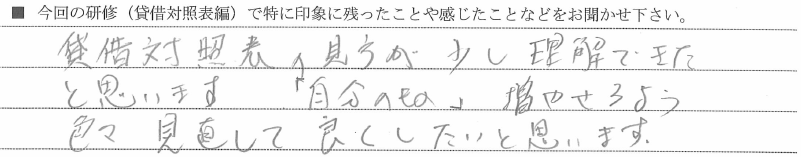 ■ 今回の研修（貸借対照表編）で特に印象に残ったことや感じたことなどをお聞かせ下さい。
貸借対照表の見方が少し理解できた
と思います 「自分のもの」増やせるよう
色々見直して良くしたいと思います。